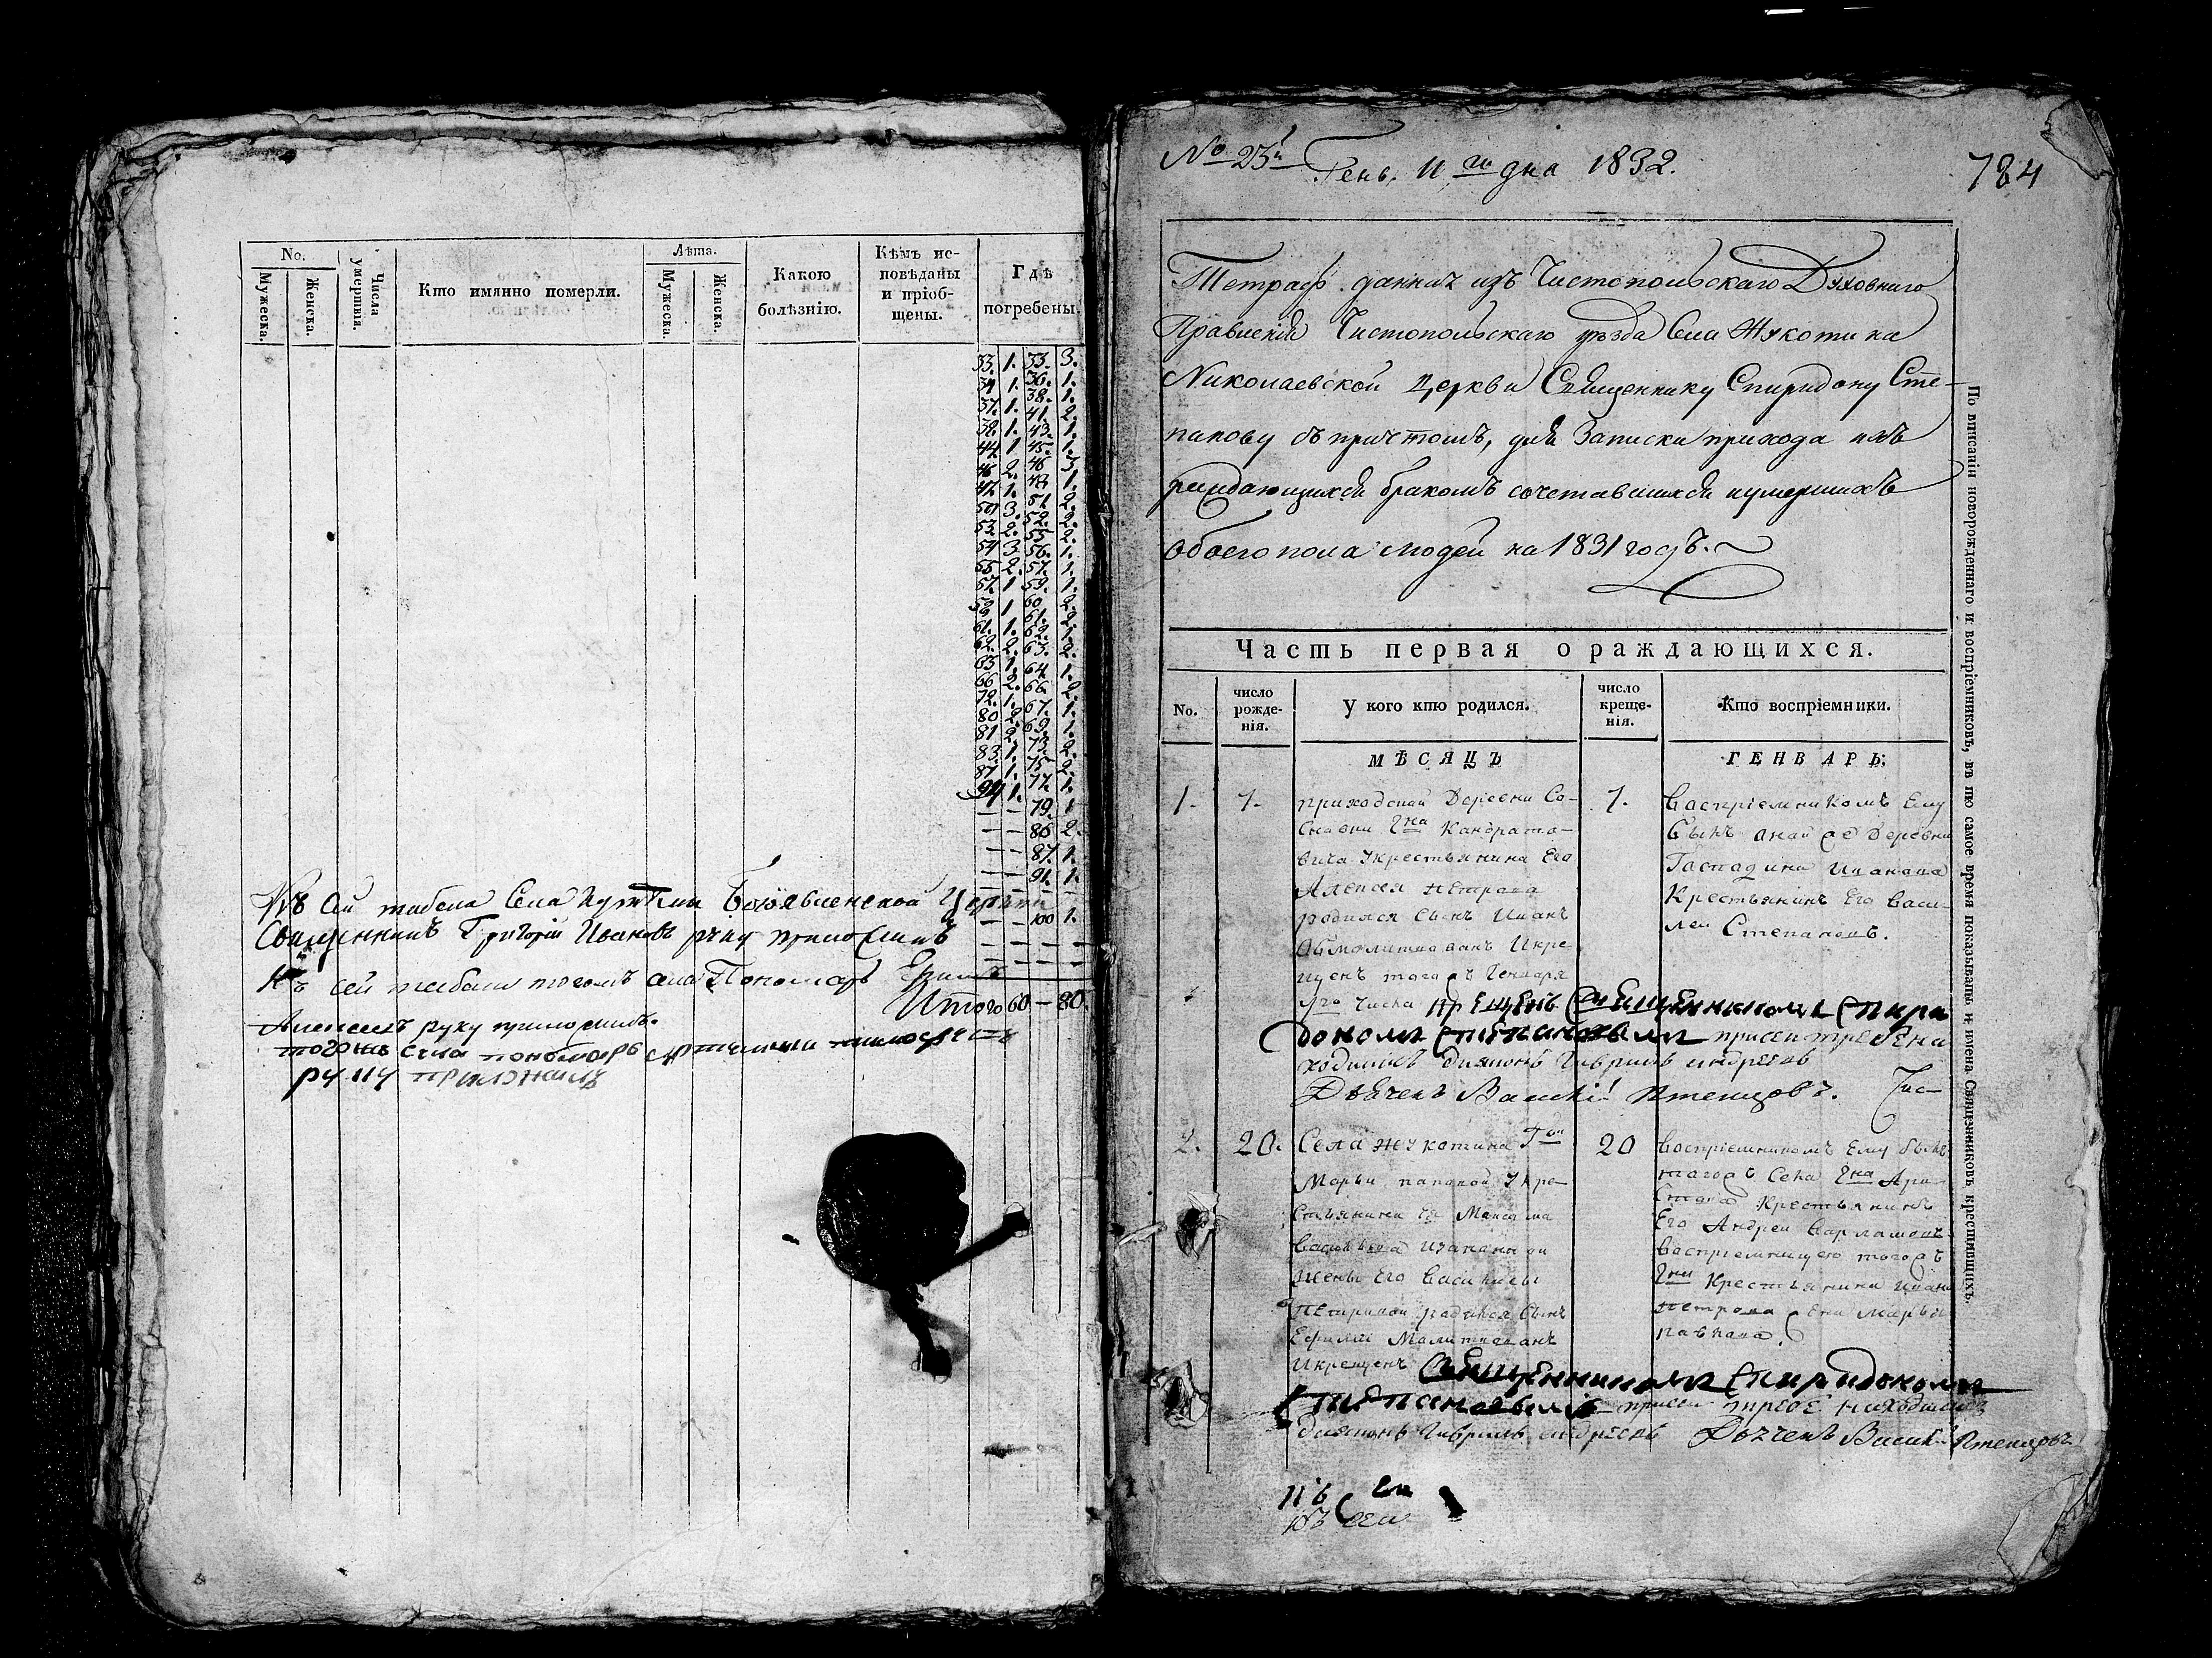 No.
Мужеска.
Женска.
Числа умершвія.
Кто имянно померли.
Лѣта.
Мужеска.
Женска.
Какою болѣзнію.
Кѣмъ исповѣданы и пріобщены.
Гдѣ погребены.
33. 1. 35. 3.
34 1. 36. 1.
37. 1. 38. 1.
38. 1. 41. 2.
44 1 43. 1.
46 2. 45. 1.
47. 1. 46 3
50 3. 48 1.
53. 2. 51 2.
54 3. 52. 2.
55 2. 55 2.
57 1 56. 1.
59 1. 57. 1.
61. 1. 59. 1.
62. 2. 60 2.
63 1. 61. 2.
66 2. 62. 1.
72. 1. 63. 2.
80 2. 64 1.
81 2. 66. 2.
83. 1. 67. 1.
87. 1. 69. 1.
94 1. 73. 2.
75 2.
77. 1.
— — 79. 1
— — 86 2.
— — 87. 1.
— — 91. 1.
— — 100 1.
Къ сей табели Села Богоявленской Церкви
Священникъ Григорій Ивановъ руку приложилъ
Къ сей табели тогожъ села Пономарь
Итого 60 — 80.
Алексеевъ руку приложилъ.
тогожъ села пономарь
руку приложилъ
No 23й Генв. 11го дня 1832.
784
Тетрадь данная изъ Чистопольскаго Духовнаго
Правленія Чистопольскаго уѣзда Села Жукотина
Николаевской Церкви Священнику Спиридону Сте-
панову съ причтомъ, для Записки прихода ихъ
рождающихся бракомъ сочетавшихся и умершихъ
обоего пола людей на 1831 годъ.
Часть первая о раждающихся.
No.
число рожденія.
У кого кто родился.
число крещенія.
Кто воспріемники.
МѢСЯЦЪ
ГЕНВАРЬ.
1. 7. приходской Деревни Со-
сновки Гна Кандрато-
вича Укрестьянина Его
Алексея Петрова
родился Сынъ Иванъ
Обмолитвованъ Икре-
щенъ тогожъ Генваря
7го числа крещенъ Священникомъ Спири
дономъ Степановымъ при сей требе на
ходился диаконъ Гаврилъ андреевъ
Дьячекъ Василій Птенцовъ.
7. воспріемникомъ Ему
былъ аной же Деревни
Гаспадина Иванова
Крестьянинъ Его Васи-
лей Степановъ.
2. 20. Села Жукотина Гжи
Марьи Павловой Укре-
стьянина Ея Максима
Васильева Изаконной
жены Его Василисы
Петровой родился Сынъ
Ефимий Малитвованъ
Икрещенъ Священникомъ Спиридономъ
Степановымъ при сей требе находился
диаконъ Гаврилъ андреевъ Дьячекъ Василій Птенцовъ
20 воспріемникомъ Ему былъ
тагожъ Села Гна Ари-
стова Крестьянинъ
Его Андрей Варламовъ
воспріемницею тогожъ
Гна Крестьянина Ивана
Петрова жена Марья
Павлова.
По вписаніи новорожденнаго и воспріемниковъ, въ то самое время показывать и имена Священниковъ крестившихъ.